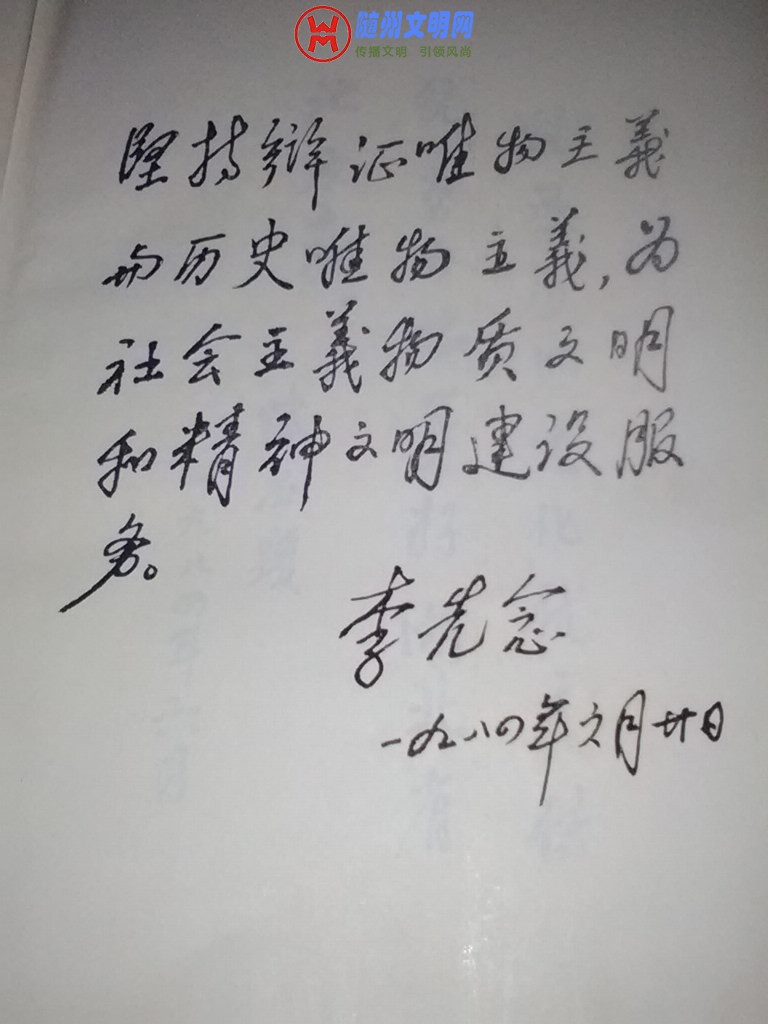 随州文明网
传播文明 引领风尚
堅持辩证唯物主義
与历史唯物主義,为
社会主義物质文明
和精神文明建设服
务。
李先念
一九八四年六月廿日